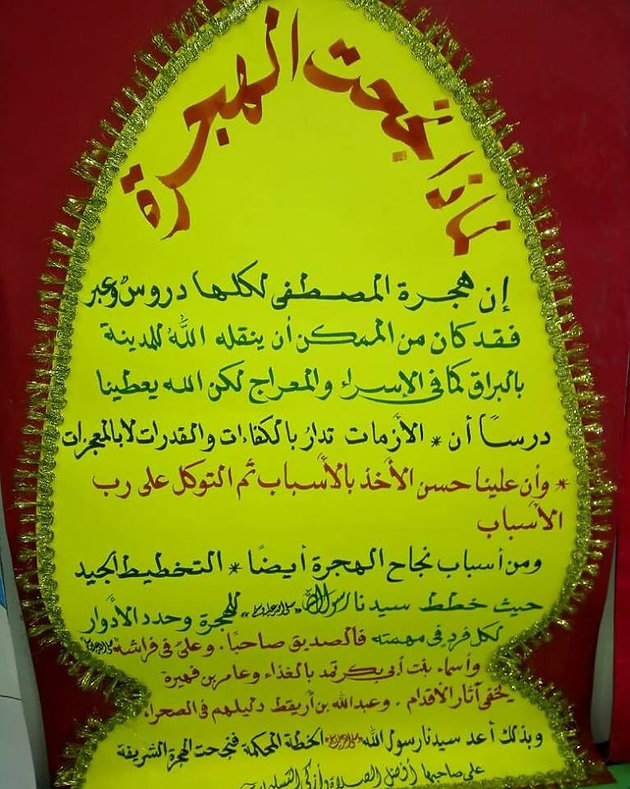 لماذا نجحت الهجرة
إن هجرة المصطفى لكلها دروسٌ وعبر
فقد كان من الممكن أن ينقله اللَّهُ للمدينة
بالبراق كما في الإسراء والمعراج لكن الله يعطينا
درساً أن * الأزمات تدارُ بالكفاءات والقدرات لا بالمعجزات
* وأن علينا حسن الأخذ بالأسباب ثم التوكل على رب
الأسباب
ومن أسباب نجاح الهجرة أيضاً * التخطيط الجيد
حيث خطط سيدنا رسول الله ﷺ للهجرة وحدد الأدوار
لكل فرد في مهمته فالصديق صاحباً . وعليٌ في فراشه ﷺ
وأسماء بنت أبي بكر تمد بالغذاء وعامر بن فهيرة
يخفي آثار الأقدام . وعبدالله بن أريقط دليلهم في الصحراء
وبذلك أعد سيدنا رسول الله ﷺ الخطة المحكمة فنجحت الهجرة الشريفة
على صاحبها أفضل الصلاة وأزكى التسليمات